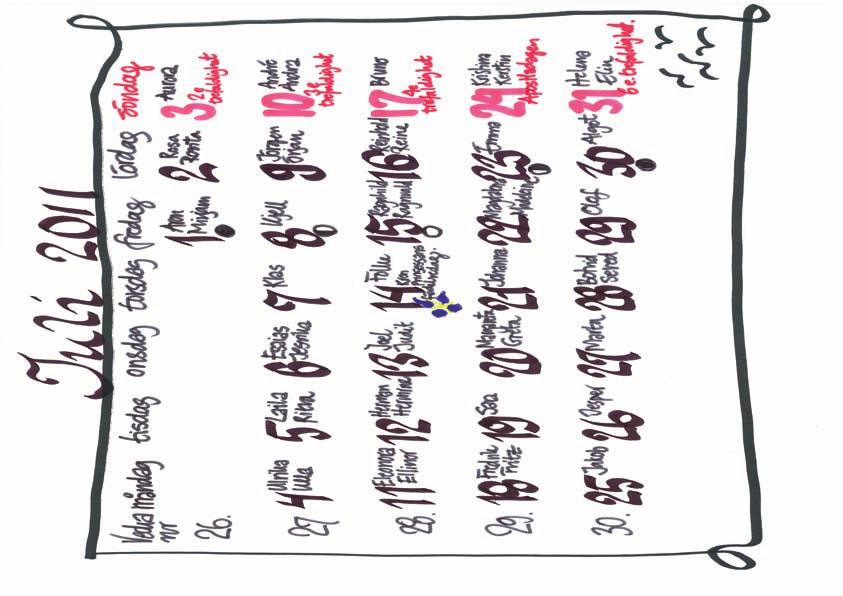 Juli 2011
Vecka nr måndag tisdag onsdag torsdag fredag lördag söndag
26.
1 Aron Mirjam
2 Rosa Rosita
3 Aurora 2e trefaldighet
27
4 Ulrika Ulla
5 Laila Ritva
6 Esaias Jessika
7 Klas
8 Kjell
9 Jörgen Örjan
10 André Andrea 3e trefaldighet
28.
11 Eleonora Ellinor
12 Herman Hermine
13 Joel Judit
14 Folke
15 Ragnhild Ragnvald
16 Reinhold Reine
17 Bruno 4e trefaldighet
29.
18 Fredrik Fritz
19 Sara
20 Margareta Greta
21 Johanna
22 Magdalena Madeleine
23 Emma
24 Kristina Kerstin Apostladagen
30.
25 Jakob
26 Jesper
27 Marta
28 Botvid Seved
29 Olof
30 Algot
31 Helena Elin 6 e. trefaldighet.